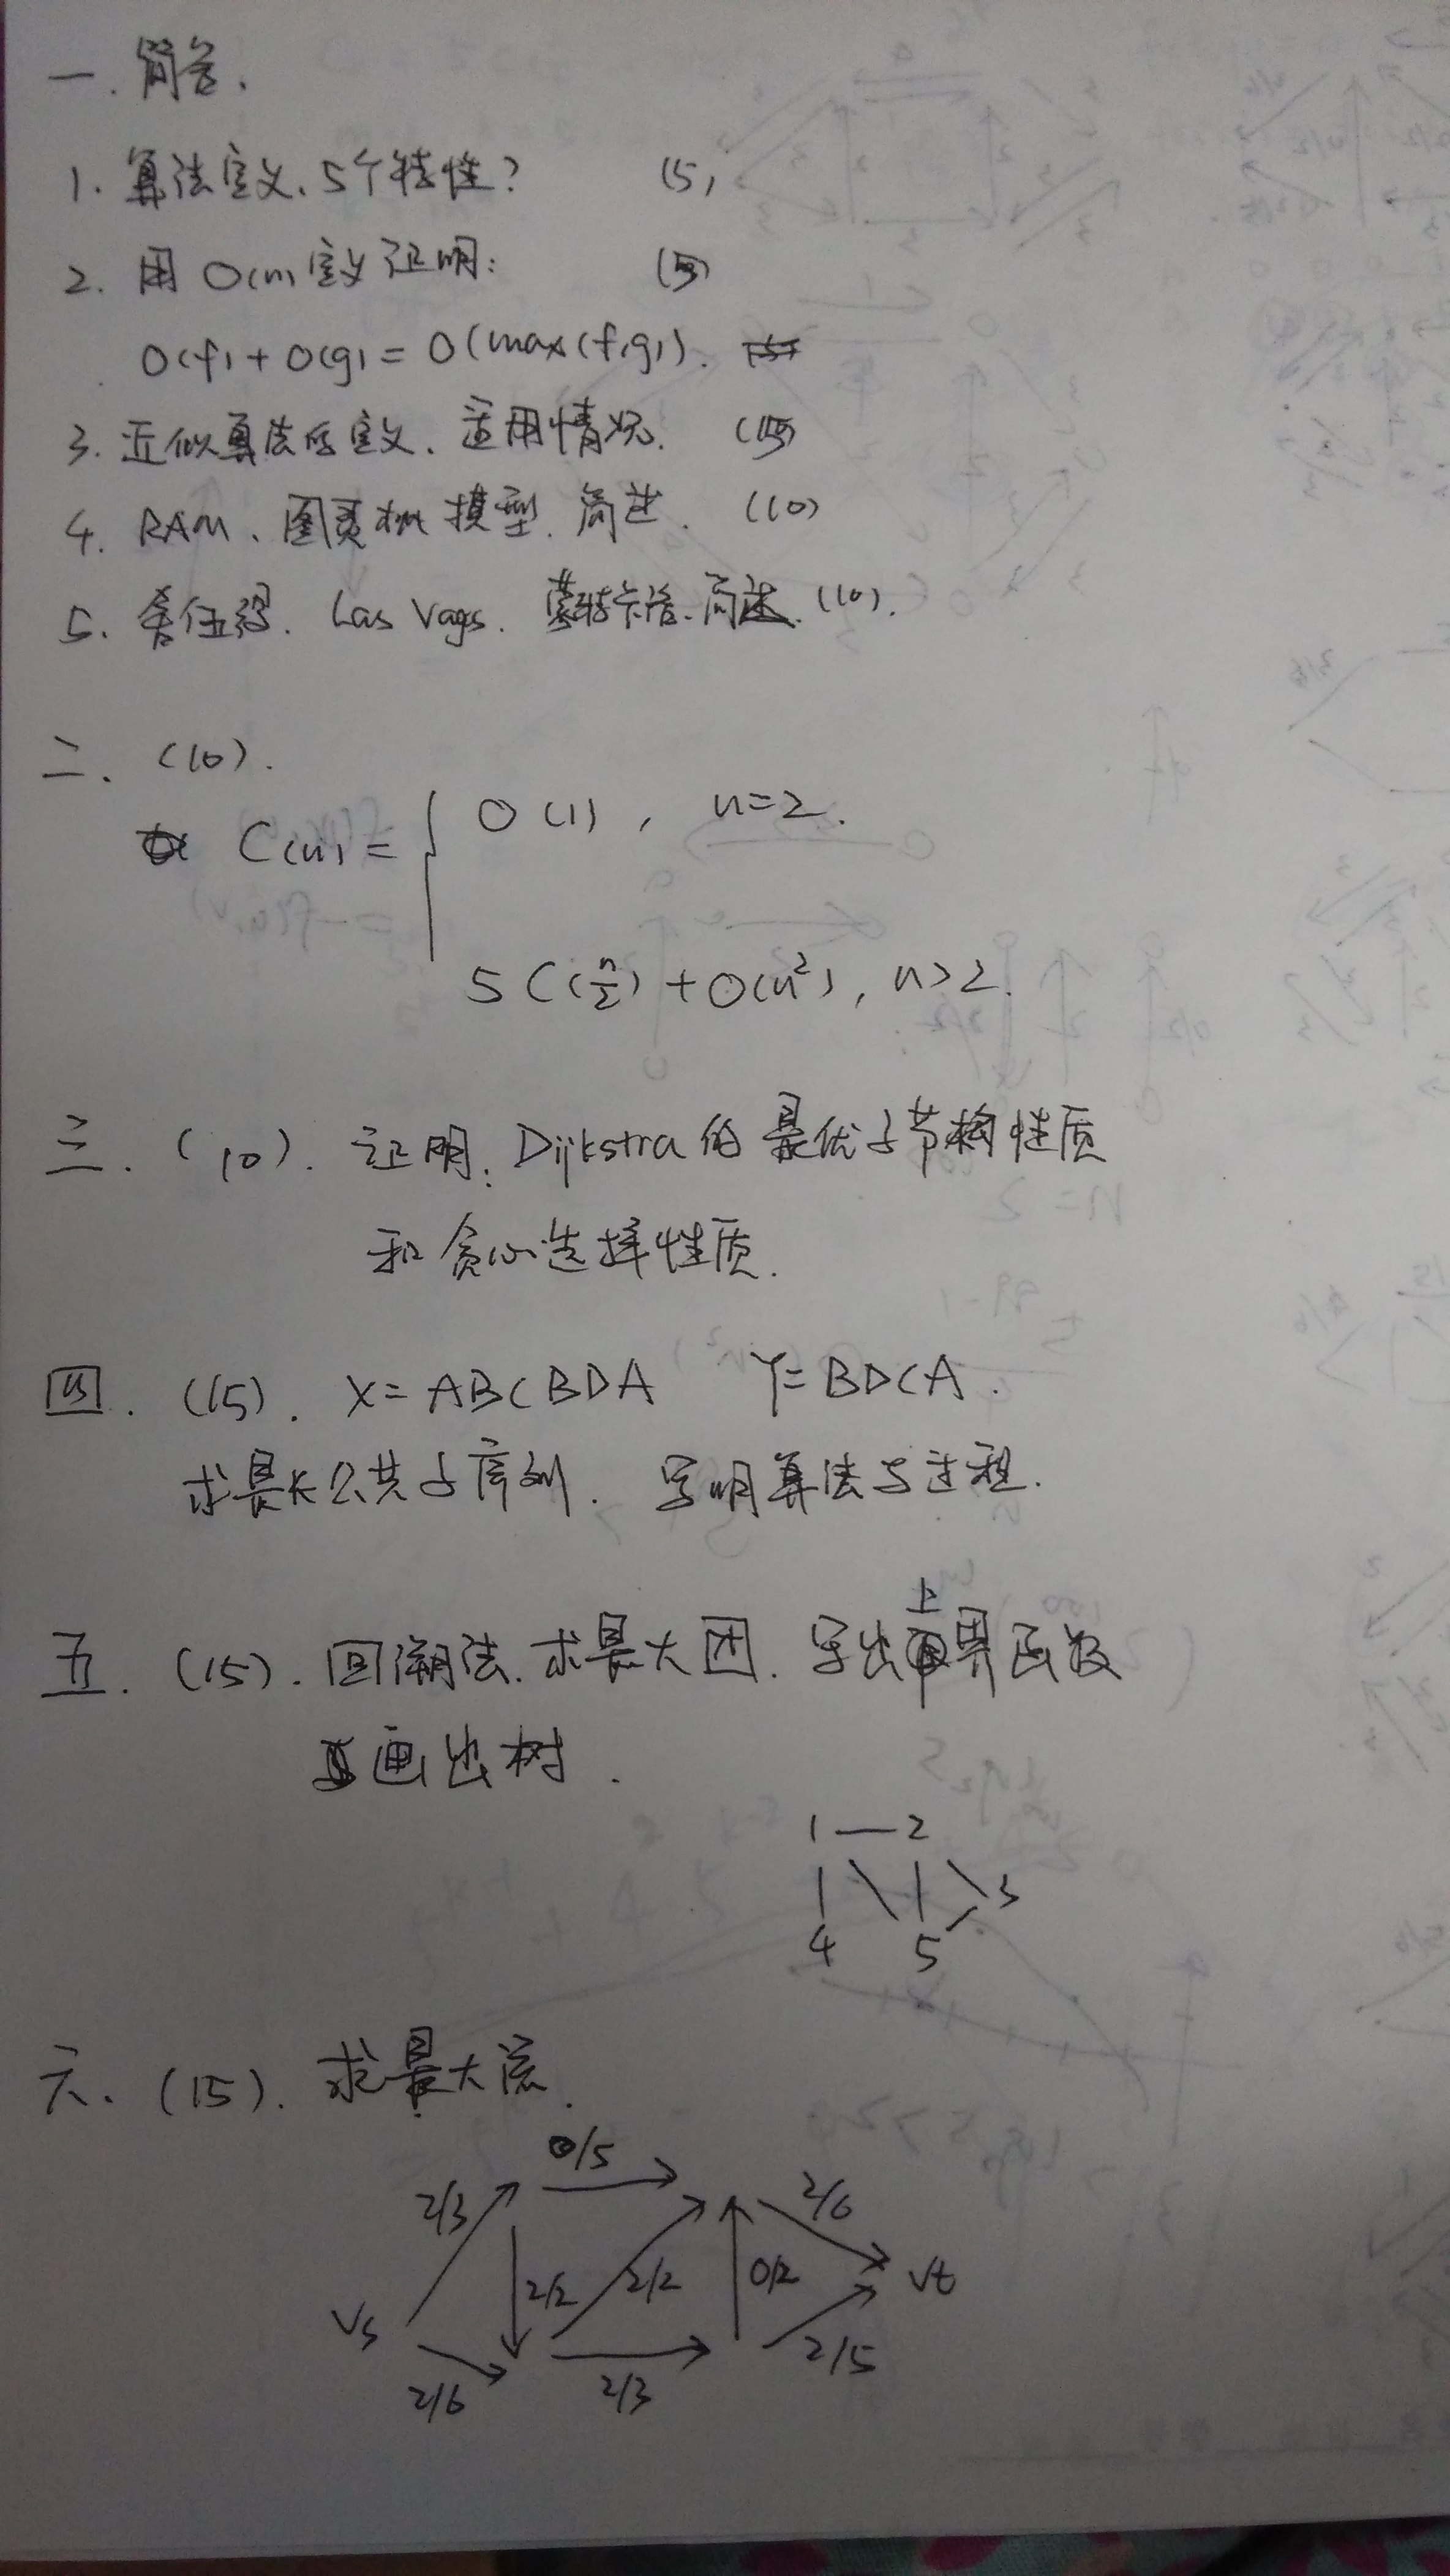 一. 简答.
1. 算法定义、5个特性? (5)
2. 用 O(n) 定义证明: (5)
O(f) + O(g) = O(max(f,g)).
3. 近似算法的定义、适用情况. (5)
4. RAM、图灵机模型、简述. (10)
5. 舍伍得. Las Vags. 蒙特卡洛. 简述. (10).
二. (10).
C(n) = { O(1), n=2.
5C(n/2) + O(n²), n>2.
三. (10). 证明: Dijkstra的最优子节构性质
和贪心选择性质.
四. (15). X= ABCBDA Y= BDCA.
求最长公共子序列. 写明算法与过程.
五. (15). 回溯法. 求最大团. 写出上界函数
画出树.
1 — 2
3
4 5
六. (15). 求最大流.
0/5
2/3 2/6
2/2 2/2 0/2 Vt
Vs
2/6 2/3 2/5